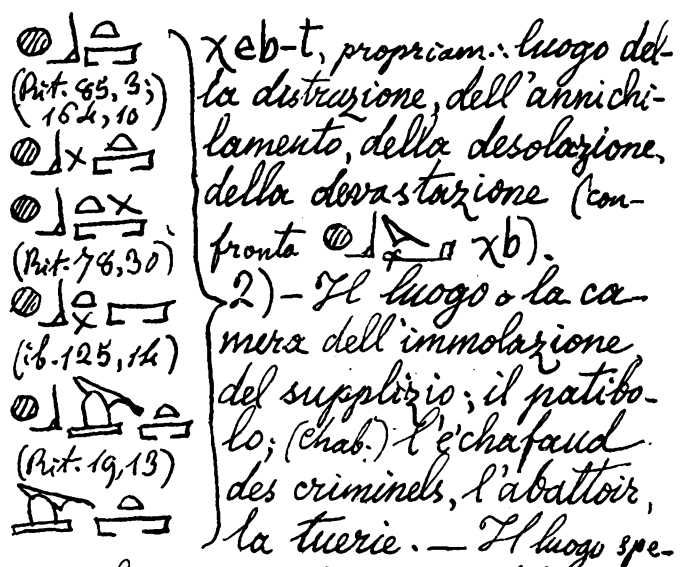 (Rit. 85, 3;
164, 10)
(Rit. 78, 30)
(ib. 125, 14)
(Rit. 19, 13)
χeb-t, propriam.: luogo del-
la distruzione, dell'annichi-
lamento, della desolazione,
della devastazione (con-
fronta χb).
2) — Il luogo o la ca-
mera dell'immolazione,
del supplizio; il patibo-
lo; (Chab.) l'échafaud
des criminels, l'abattoir,
la tuerie. — Il luogo spe-